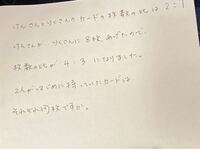 けんさんとりくさんのカードの枚数の比は2:1
けんさんが りくさんに 8枚 あげたので、
枚数の比が 4:3 になりました。
2人がはじめに持っていたカードは
それぞれ何枚ですか。